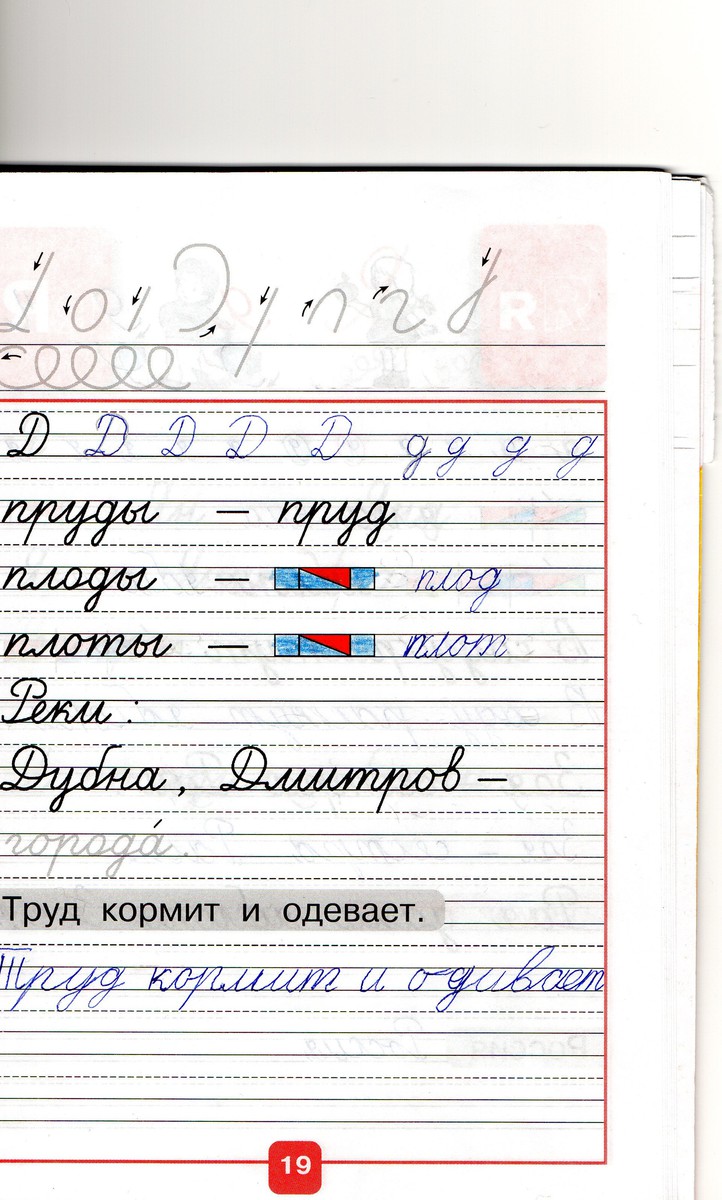 Д Д Д Д Д д д д д
пруды — пруд
плоды — плод
плоты — плот
Реки:
Дубна, Дмитров —
города́.
Труд кормит и одевает.
Труд кормит и одивает
19